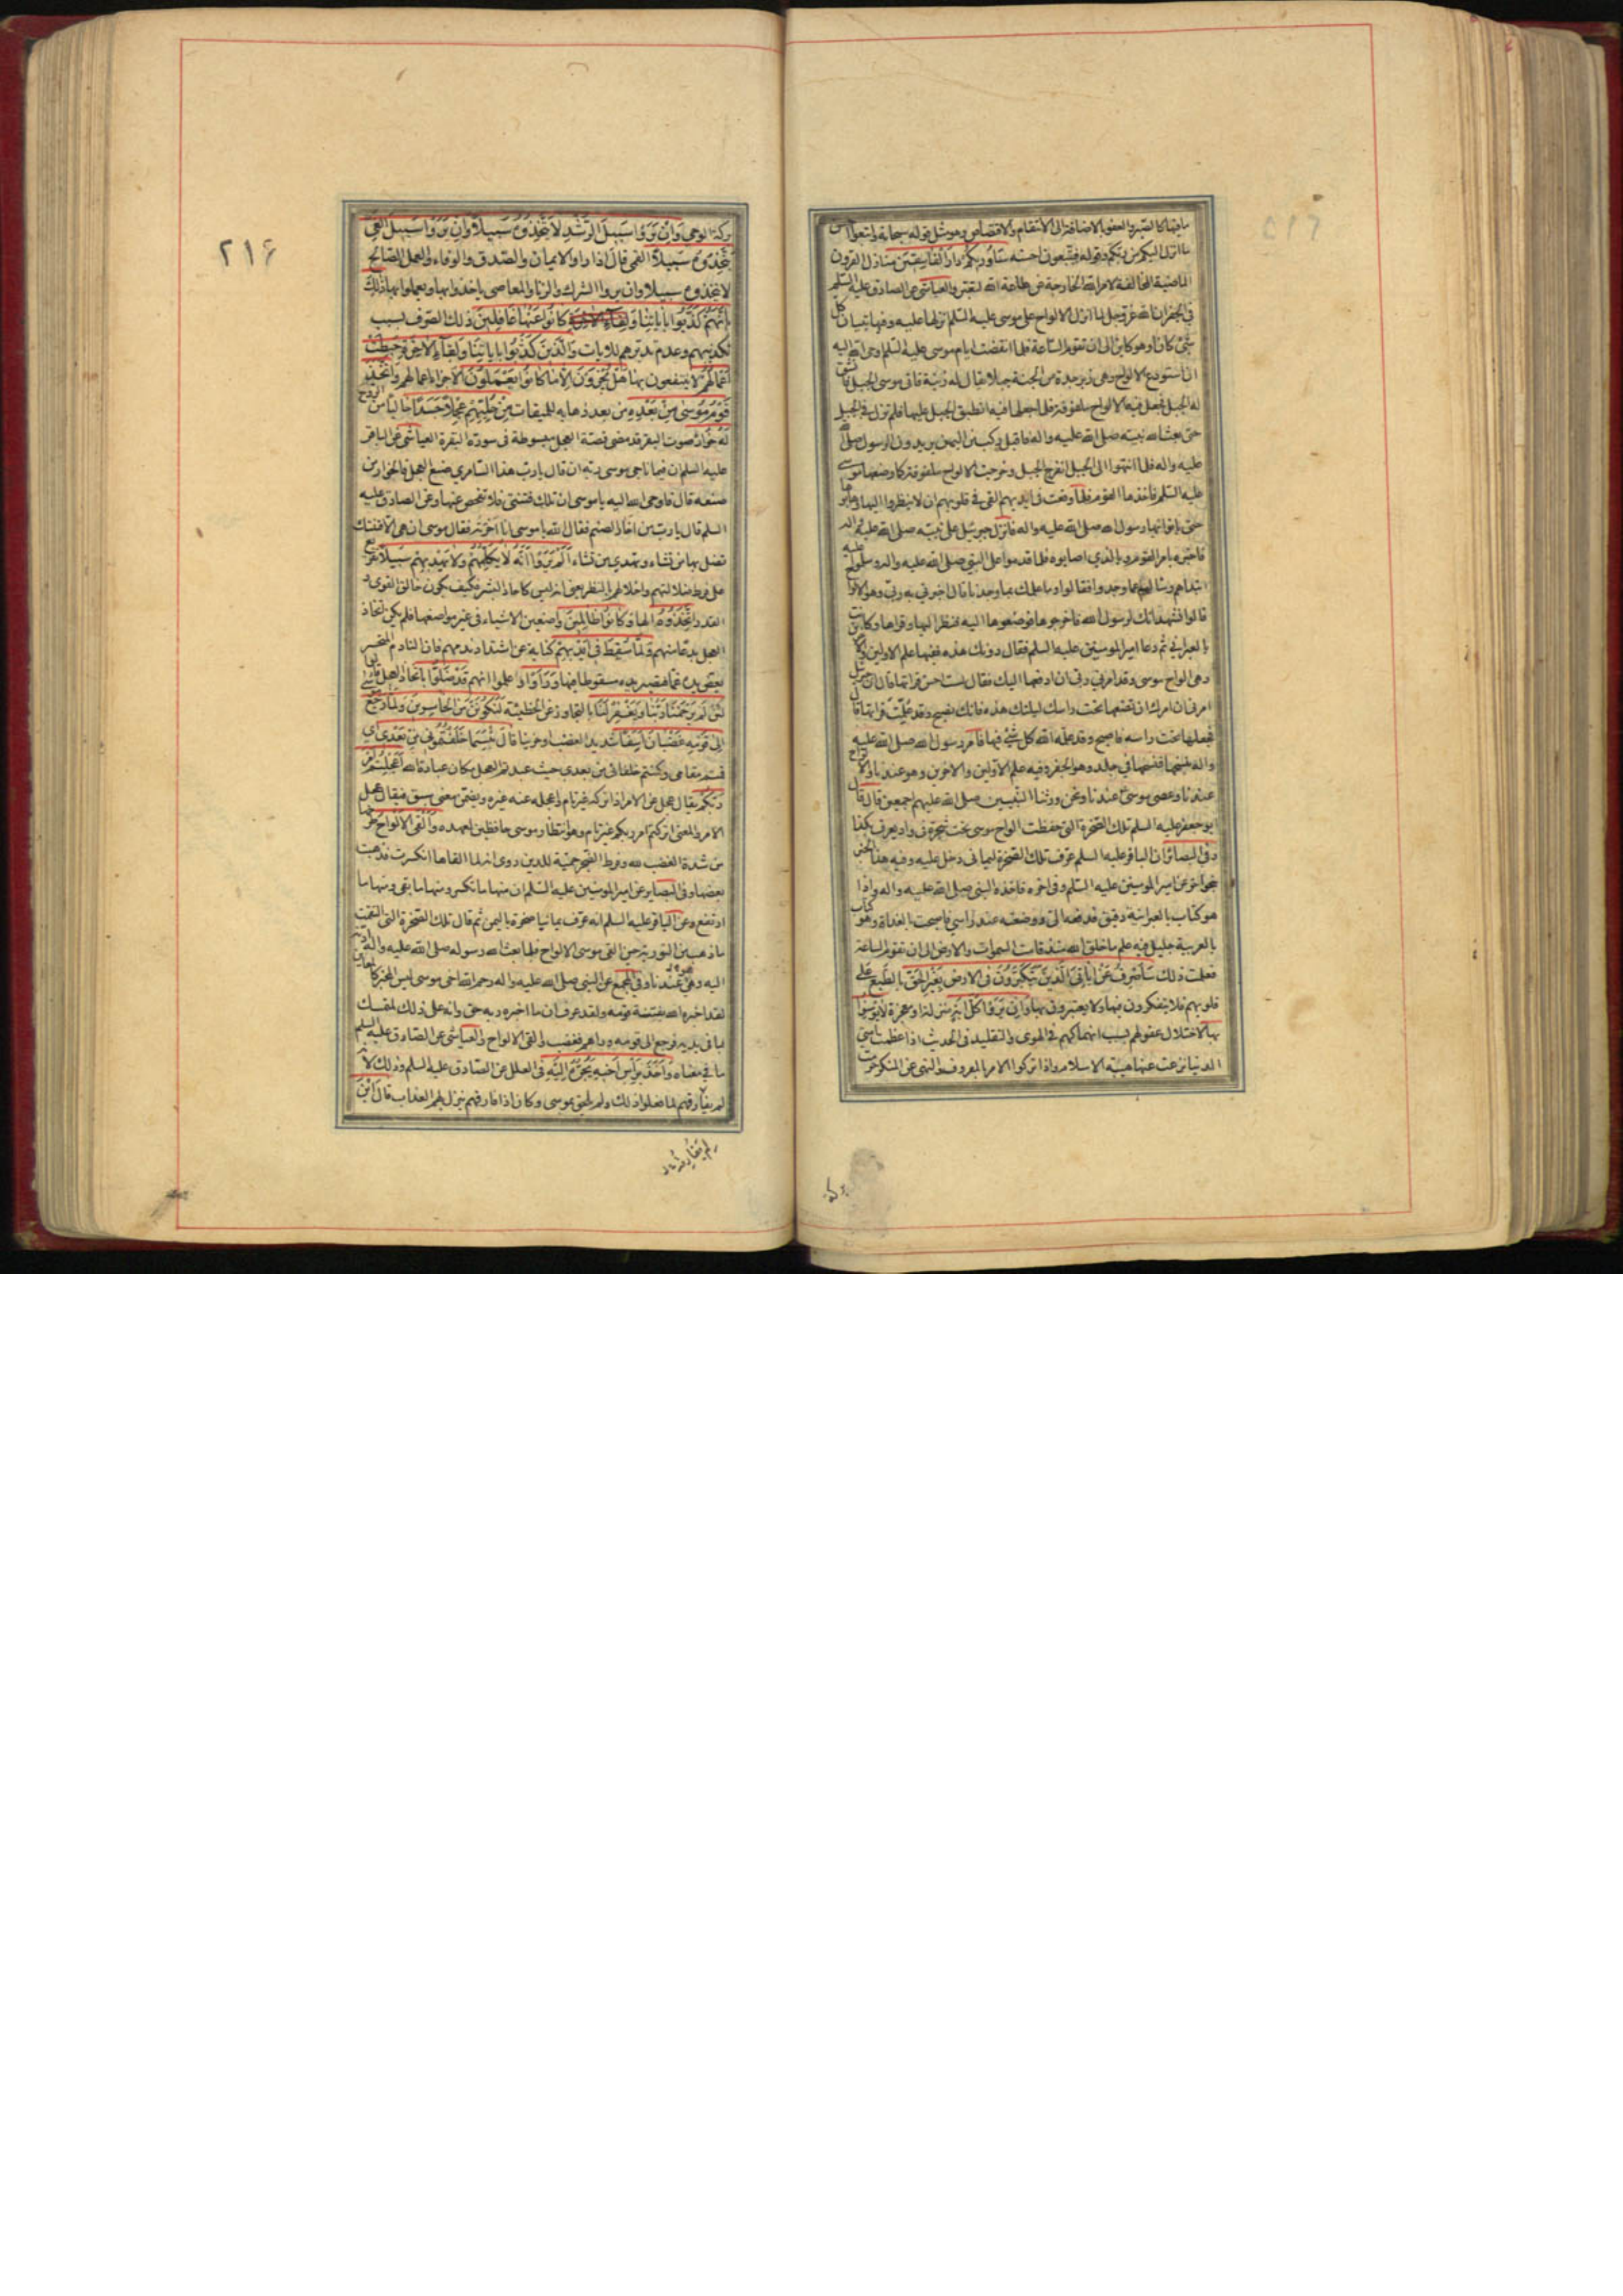 ما فيها كالصبر والعفو بالاضافة الى الانتقام والاقتصاص وهو مثل قوله سبحانه واتبعوا احسن
ما انزل اليكم من ربكم وقوله فيتبعون احسنه سَأُورِيكُمْ دَارَ الْفَاسِقِينَ منازل القرون
الماضية المخالفة لامر الله الخارجة عن طاعة الله لتعتبروا العياشي عن الصادق عليه السلم
في الجفر ان الله عز وجل لما انزل الالواح على موسى عليه السلم انزلها عليه وفيها تبيان كل
شئ كان او هو كاين الى ان تقوم الساعة فلما انقضت ايام موسى عليه السلم اوحى الله اليه
ان استودع الالواح وهي زبرجدة من الجنة جبلا يقال له زينة فاتى موسى الجبل فانشق
له الجبل فجعل فيه الالواح ملفوفة فلما جعلها فيه انطبق الجبل عليها فلم تزل في الجبل
حتى بعث الله نبيه صلى الله عليه واله فاقبل ركب من اليمن يريدون الرسول صلى الله
عليه واله فلما انتهوا الى الجبل انفرج الجبل وخرجت الالواح ملفوفة كما وضعها موسى
عليه السلم فاخذها القوم فلما وقعت في ايديهم القي في قلوبهم ان لا ينظروا اليها وهابوها
حتى ياتوا بها رسول الله صلى الله عليه واله فانزل جبرئيل على نبيه صلى الله عليه واله
فاخبره بامر القوم وبالذي اصابوه فلما قدموا على النبي صلى الله عليه واله وسلموا عليه
ابتداهم وسالهم عما وجدوا فقالوا وما علمك بما وجدنا قال اخبرني به ربي وهو الالواح
قالوا نشهد انك لرسول الله فاخرجوها فوضعوها اليه فنظر اليها وقراها وكانت
بالعبراني ثم دعا امير المومنين عليه السلم فقال دونك هذه ففيها علم الاولين والاخرين
وهي الواح موسى وقد امرني ربي ان ادفعها اليك فقال لست احسن قراتها قال ان جبرئيل
امرني ان امرك ان تضعها تحت راسك ليلتك هذه فانك تصبح وقد علمت قراتها قال
فجعلها تحت راسه فاصبح وقد علمه الله كل شئ فيها فامره رسول الله صلى الله عليه
واله بنسخها فنسخها في جلد وهو الجفر وفيه علم الاولين والاخرين وهو عندنا والالواح
عندنا وعصى موسى عندنا ونحن ورثنا النبيين صلى الله عليهم اجمعين قال قال
ابو جعفر عليه السلم تلك الصخرة التي حفظت الواح موسى تحت شجرة في واد يعرف بكذا
وفي البصائر ان الباقر عليه السلم عرف تلك الصخرة ليماني دخل عليه وفيه هذا الخبر
بنحو اخر عن امير المومنين عليه السلم وفي اخره فاخذه النبي صلى الله عليه واله واذا
هو كتاب بالعبرانية دقيق فدفعه الي ووضعته عند راسي فاصبحت بالغداة وهو كتاب
بالعربية جليل فيه علم ما خلق الله منذ قامت السموات والارض الى ان تقوم الساعة
فعلمت ذلك سَأَصْرِفُ عَنْ آيَاتِيَ الَّذِينَ يَتَكَبَّرُونَ فِي الارض بِغَيْرِ الْحَقِّ بالطبع على
قلوبهم فلا يتفكرون فيها ولا يعتبرون بها وَإِنْ يَرَوْا كُلَّ آيَةٍ منزلة او معجزة لَا يُؤْمِنُوا
بها لاختلال عقولهم بسبب انهماكهم في الهوى والتقليد في الحديث اذا عظمت امتي
الدنيا نزعت عنها هيبة الاسلام واذا تركوا الامر بالمعروف والنهي عن المنكر حرمت
بركة
٢١۶
بركة الوحي وَإِنْ يَرَوْا سَبِيلَ الرُّشْدِ لَا يَتَّخِذُوهُ سَبِيلًا وَإِنْ يَرَوْا سَبِيلَ الْغَيِّ
يَتَّخِذُوهُ سَبِيلًا القمي قال اذا راوا الايمان والصدق والوفاء والعمل الصالح
لا يتخذوه سبيلا وان يروا الشرك والزنا والمعاصي ياخذوا بها ويعملوا بها ذَلِكَ
بِأَنَّهُمْ كَذَّبُوا بِآيَاتِنَا وَلِقَاءِ الْآخِرَةِ كَانُوا عَنْهَا غَافِلِينَ ذلك الصرف بسبب
تكذيبهم وعدم تدبرهم للايات وَالَّذِينَ كَذَّبُوا بِآيَاتِنَا وَلِقَاءِ الْآخِرَةِ حَبِطَتْ
أَعْمَالُهُمْ لا ينتفعون بها هَلْ يُجْزَوْنَ إِلَّا مَا كَانُوا يَعْمَلُونَ الا جزاء اعمالهم وَاتَّخَذَ
قَوْمُ مُوسَى مِنْ بَعْدِهِ من بعد ذهابه للميقات مِنْ حُلِيِّهِمْ عِجْلًا جَسَدًا خاليا من الروح
لَهُ خُوَارٌ صوت البقر قد مضى قصة العجل مبسوطة في سورة البقرة العياشي عن الباقر
عليه السلم ان فيما ناجى موسى ربه ان قال يارب هذا السامري صنع العجل فالخوار من
صنعه قال فاوحى الله اليه يا موسى ان تلك فتنتي فلا تفحص عنها وعن الصادق عليه
السلم قال يا رب من اخار الصنم فقال الله يا موسى انا اخرته فقال موسى ان هي الا فتنتك
تضل بها من تشاء وتهدي من تشاء أَلَمْ يَرَوْا أَنَّهُ لَا يُكَلِّمُهُمْ وَلَا يَهْدِيهِمْ سَبِيلًا تقريع
على فرط ضلالتهم واخلالهم بالنظر يعني انه ليس كاحاد البشر فكيف يكون خالق القوى و
القدر اتَّخَذُوهُ الها وَكَانُوا ظَالِمِينَ واضعين الاشياء في غير مواضعها فلم يكن اتخاذ
العجل بدعا منهم وَلَمَّا سُقِطَ فِي أَيْدِيهِمْ كناية عن اشتداد ندمهم فان النادم المتحسر
يعض يده غما فتصير يده مسقوطا فيها وَرَأَوْا وعلموا انهم قَدْ ضَلُّوا باتخاذ العجل قَالُوا
لَئِنْ لَمْ يَرْحَمْنَا رَبُّنَا وَيَغْفِرْ لَنَا بالتجاوز عن الخطيئة لَنَكُونَنَّ مِنَ الْخَاسِرِينَ وَلَمَّا رَجَعَ
إِلَى قَوْمِهِ غَضْبَانَ أَسِفًا شديد الغضب او حزينا قَالَ بِئْسَمَا خَلَفْتُمُونِي مِنْ بَعْدِي اي
قمتم مقامي وكنتم خلفائي من بعدي حيث عبدتم العجل مكان عبادة الله أَعَجِلْتُمْ أَمْرَ
رَبِّكُمْ يقال عجل عن الامر اذا تركه غير تام واعجله عنه غيره ويضمن معنى سبق فيقال عجل
الامر والمعنى اتركتم امر ربكم غير تام وهو انتظار موسى حافظين لعهده وَأَلْقَى الْأَلْوَاحَ طرحها
من شدة الغضب لله وفرط الضجر حمية للدين روى انه لما القاها انكسرت فذهبت
بعضها وفي البصاير عن امير المومنين عليه السلم ان منها ما تكسر ومنها ما بقى ومنها ما
ارتفع وعن الباقر عليه السلم انه عرف يمانيا صخرة باليمن ثم قال تلك الصخرة التي التقمت
ما ذهب من التورية حين القى موسى الالواح فلما بعث الله رسوله صلى الله عليه واله ادته
اليه وهي عندنا وفي المجمع عن النبي صلى الله عليه واله رحم الله اخي موسى ليس المخبر كالمعاين
لقد اخبره الله بفتنة قومه ولقد عرف ان ما اخبره ربه حق وانه على ذلك لمتمسك
بما في يديه فرجع الى قومه وراهم فغضب والقى الالواح والعياشي عن الصادق عليه السلم
ما في معناه وَأَخَذَ بِرَأْسِ أَخِيهِ يَجُرُّهُ إِلَيْهِ في العلل عن الصادق عليه السلم وذلك لانه
لم يفارقهم لما فعلوا ذلك ولم يلحق بموسى وكان اذا فارقهم ينزل بهم العذاب قَالَ ابْنَ